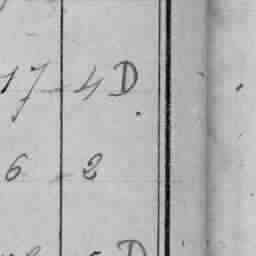 17 4 D
6 2
D